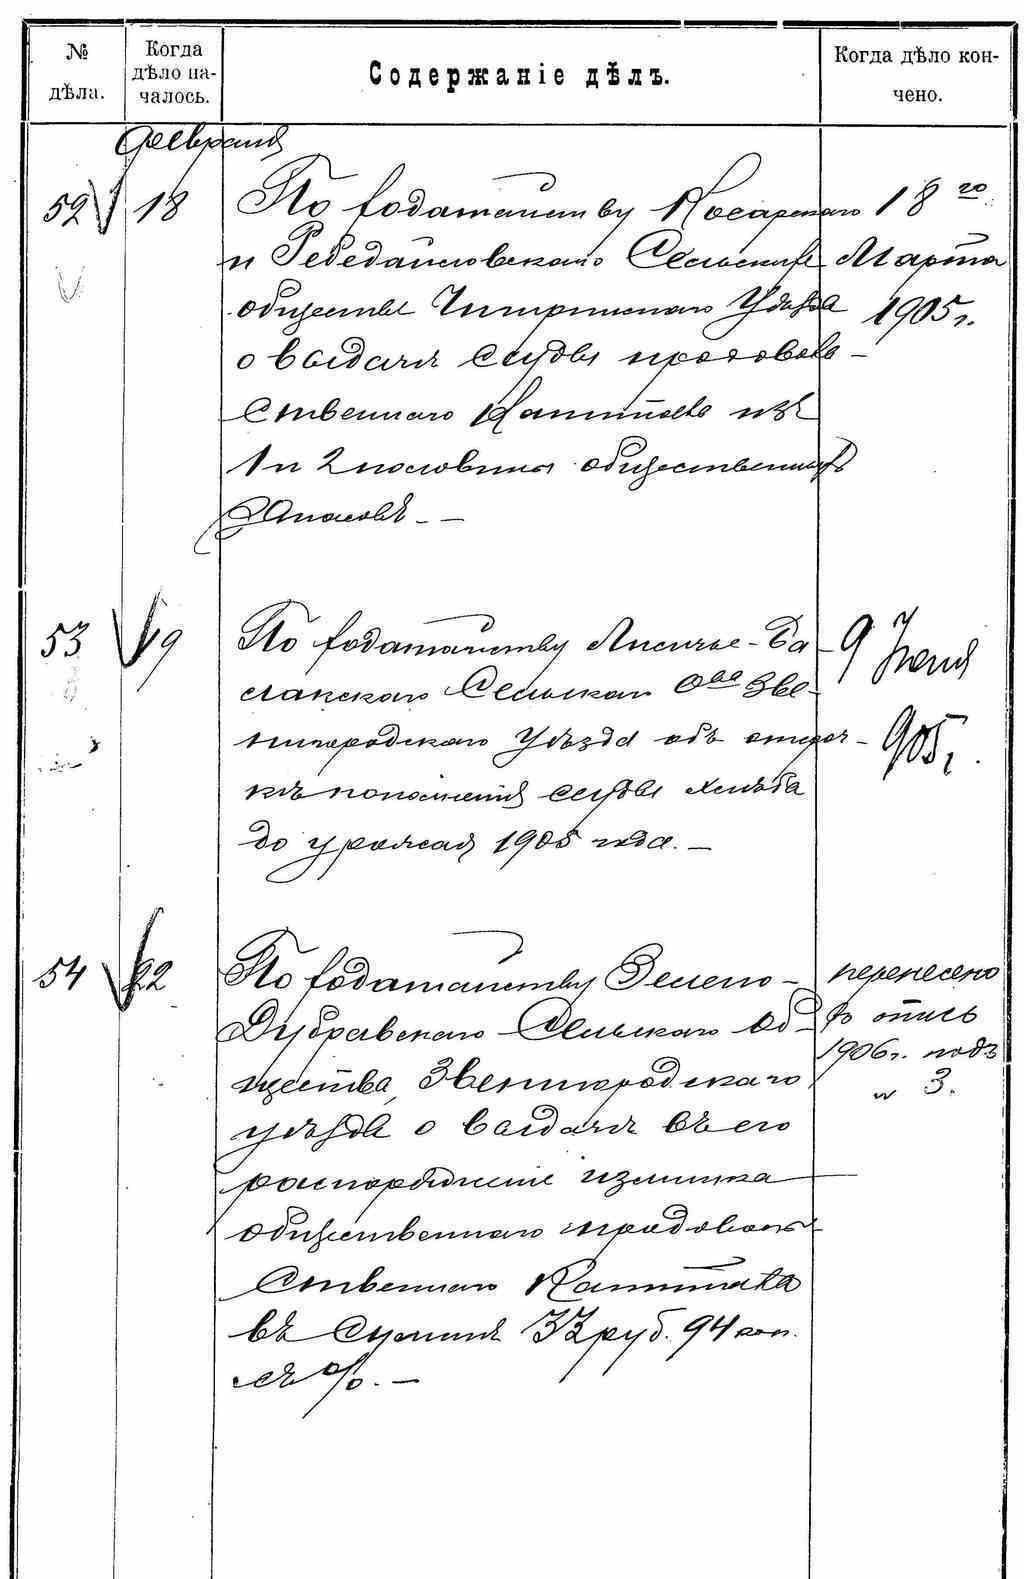 № дѣла.
Когда дѣло на-
чалось.
Содержаніе дѣлъ.
Когда дѣло кон-
чено.
Февраля
52 18
По ходатайству Косарскаго
и Ребедайловскаго Сельскихъ
обществъ Чигиринскаго Уѣзда
о выдачѣ ссуды продоволь-
ственнаго Капитала изъ
1 и 2 половины общественныхъ
запасовъ. —
18 го
Марта
1905 г.
53 19
По ходатайству Лисичье-Ба
лакскаго СельскагоОве Зве-
нигородскаго Уѣзда объ отсроч-
кѣ пополненія ссуды хлѣба
до урожая 1905 года. —
9 Іюня
905 г.
54 22
По ходатайству Зелено-
Дубравскаго Сельскаго Об-
щества, Звенигородскаго
уѣзда о выдачѣ въ его
распоряженіе излишка
общественнаго продоволь-
ственнаго Капитала
въ Суммѣ 33 руб. 94 коп.
съ %. —
перенесено
въ опись
1906 г. подъ
№ 3.